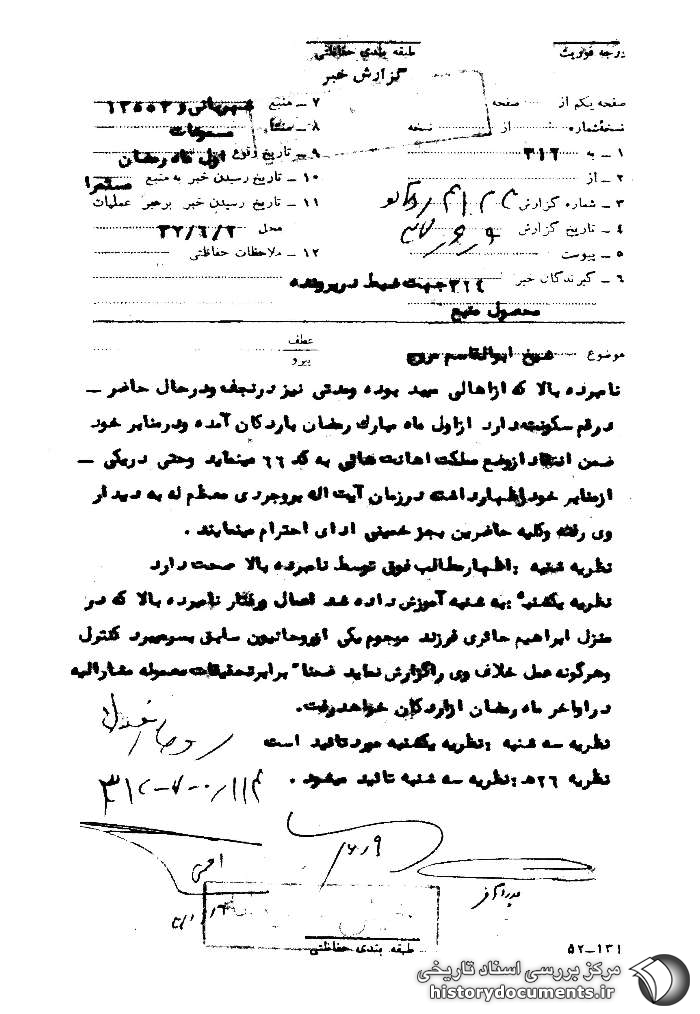 درجه فوریت
طبقه بندی حفاظتی
گزارش خبر
صفحه یکم از صفحه
نسخه شماره از نسخه
۱ - به ۳۱۲
۲ - از
۳ - شماره گزارش
۴ - تاریخ گزارش
۵ - پیوست
۶ - گیرندگان خبر ۳۲۴ جهت ضبط در پرونده
محصول منبع
۷ - منبع شهربانی و ۱۲۵۵۲
۸ - منشاء مسموعات
۹ - تاریخ وقوع اول ماه رمضان
۱۰ - تاریخ رسیدن خبر به منبع مستمرا
۱۱ - تاریخ رسیدن خبر برهبر عملیات
محل ۳۷/۶/۲
۱۲ - ملاحظات حفاظتی
موضوع شیخ ابوالقاسم مروج
عطف
پیرو
نامبرده بالا که ازاهالی میبد بوده ومدتی نیز درنجف ودرحال حاضر -
درقم سکونت دارد ازاول ماه مبارک رمضان باردکان آمده ودرمنابر خود
ضمن انتقاد ازوضع مملکت اهانت هائی به کد ۶۶ مینماید وحتی دریکی -
ازمنابر خود اظهارداشته درزمان آیت اله بروجردی معظم له به دیدار
وی رفته وکلیه حاضرین بجز خمینی ادای احترام مینمایند .
نظریه شنبه : اظهارمطالب فوق توسط نامبرده بالا صحت دارد
نظریه یکشنبه : به شنبه آموزش داده شد اعمال ورفتار نامبرده بالا که در
منزل ابراهیم حائری فرزند مرحوم یکی ازروحانیون سابق بسرمیبرد کنترل
وهرگونه عمل خلاف وی راگزارش نماید ضمنا" برابرتحقیقات معموله مشارالیه
دراواخر ماه رمضان ازاردکان خواهدرفت.
نظریه سه شنبه : نظریه یکشنبه مورد تائید است
نظریه ۲۶ هـ : نظریه سه شنبه تائید میشود .
۹ر۶
طبقه بندی حفاظتی
۵۲-۱۳۱
مرکز بررسی اسناد تاریخی
historydocuments.ir